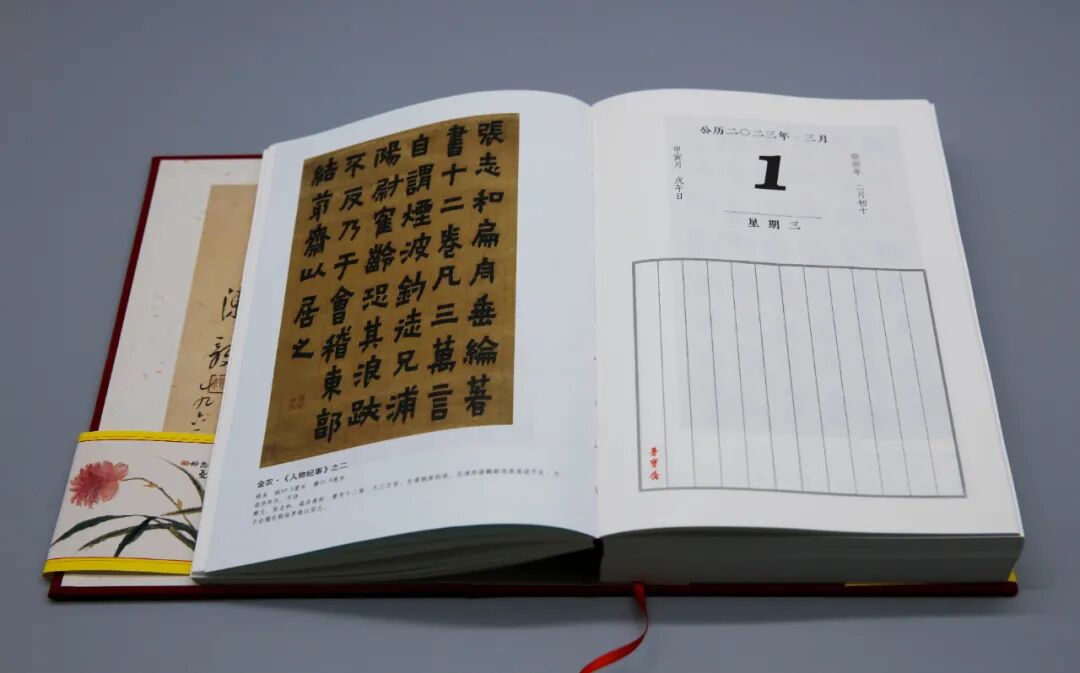 張志和扁舟垂綸著
書十二卷凡三萬言
自謂煙波釣徒兄浦
陽尉寉齡恐其浪跡
不反乃于會稽東郭
結茆齋以居之
金农·《人物纪事》之二
创作年代：不详
公历二〇二三年·三月
1
星期三
癸卯年 二月初十
甲寅月 戊午日
榮寶齋